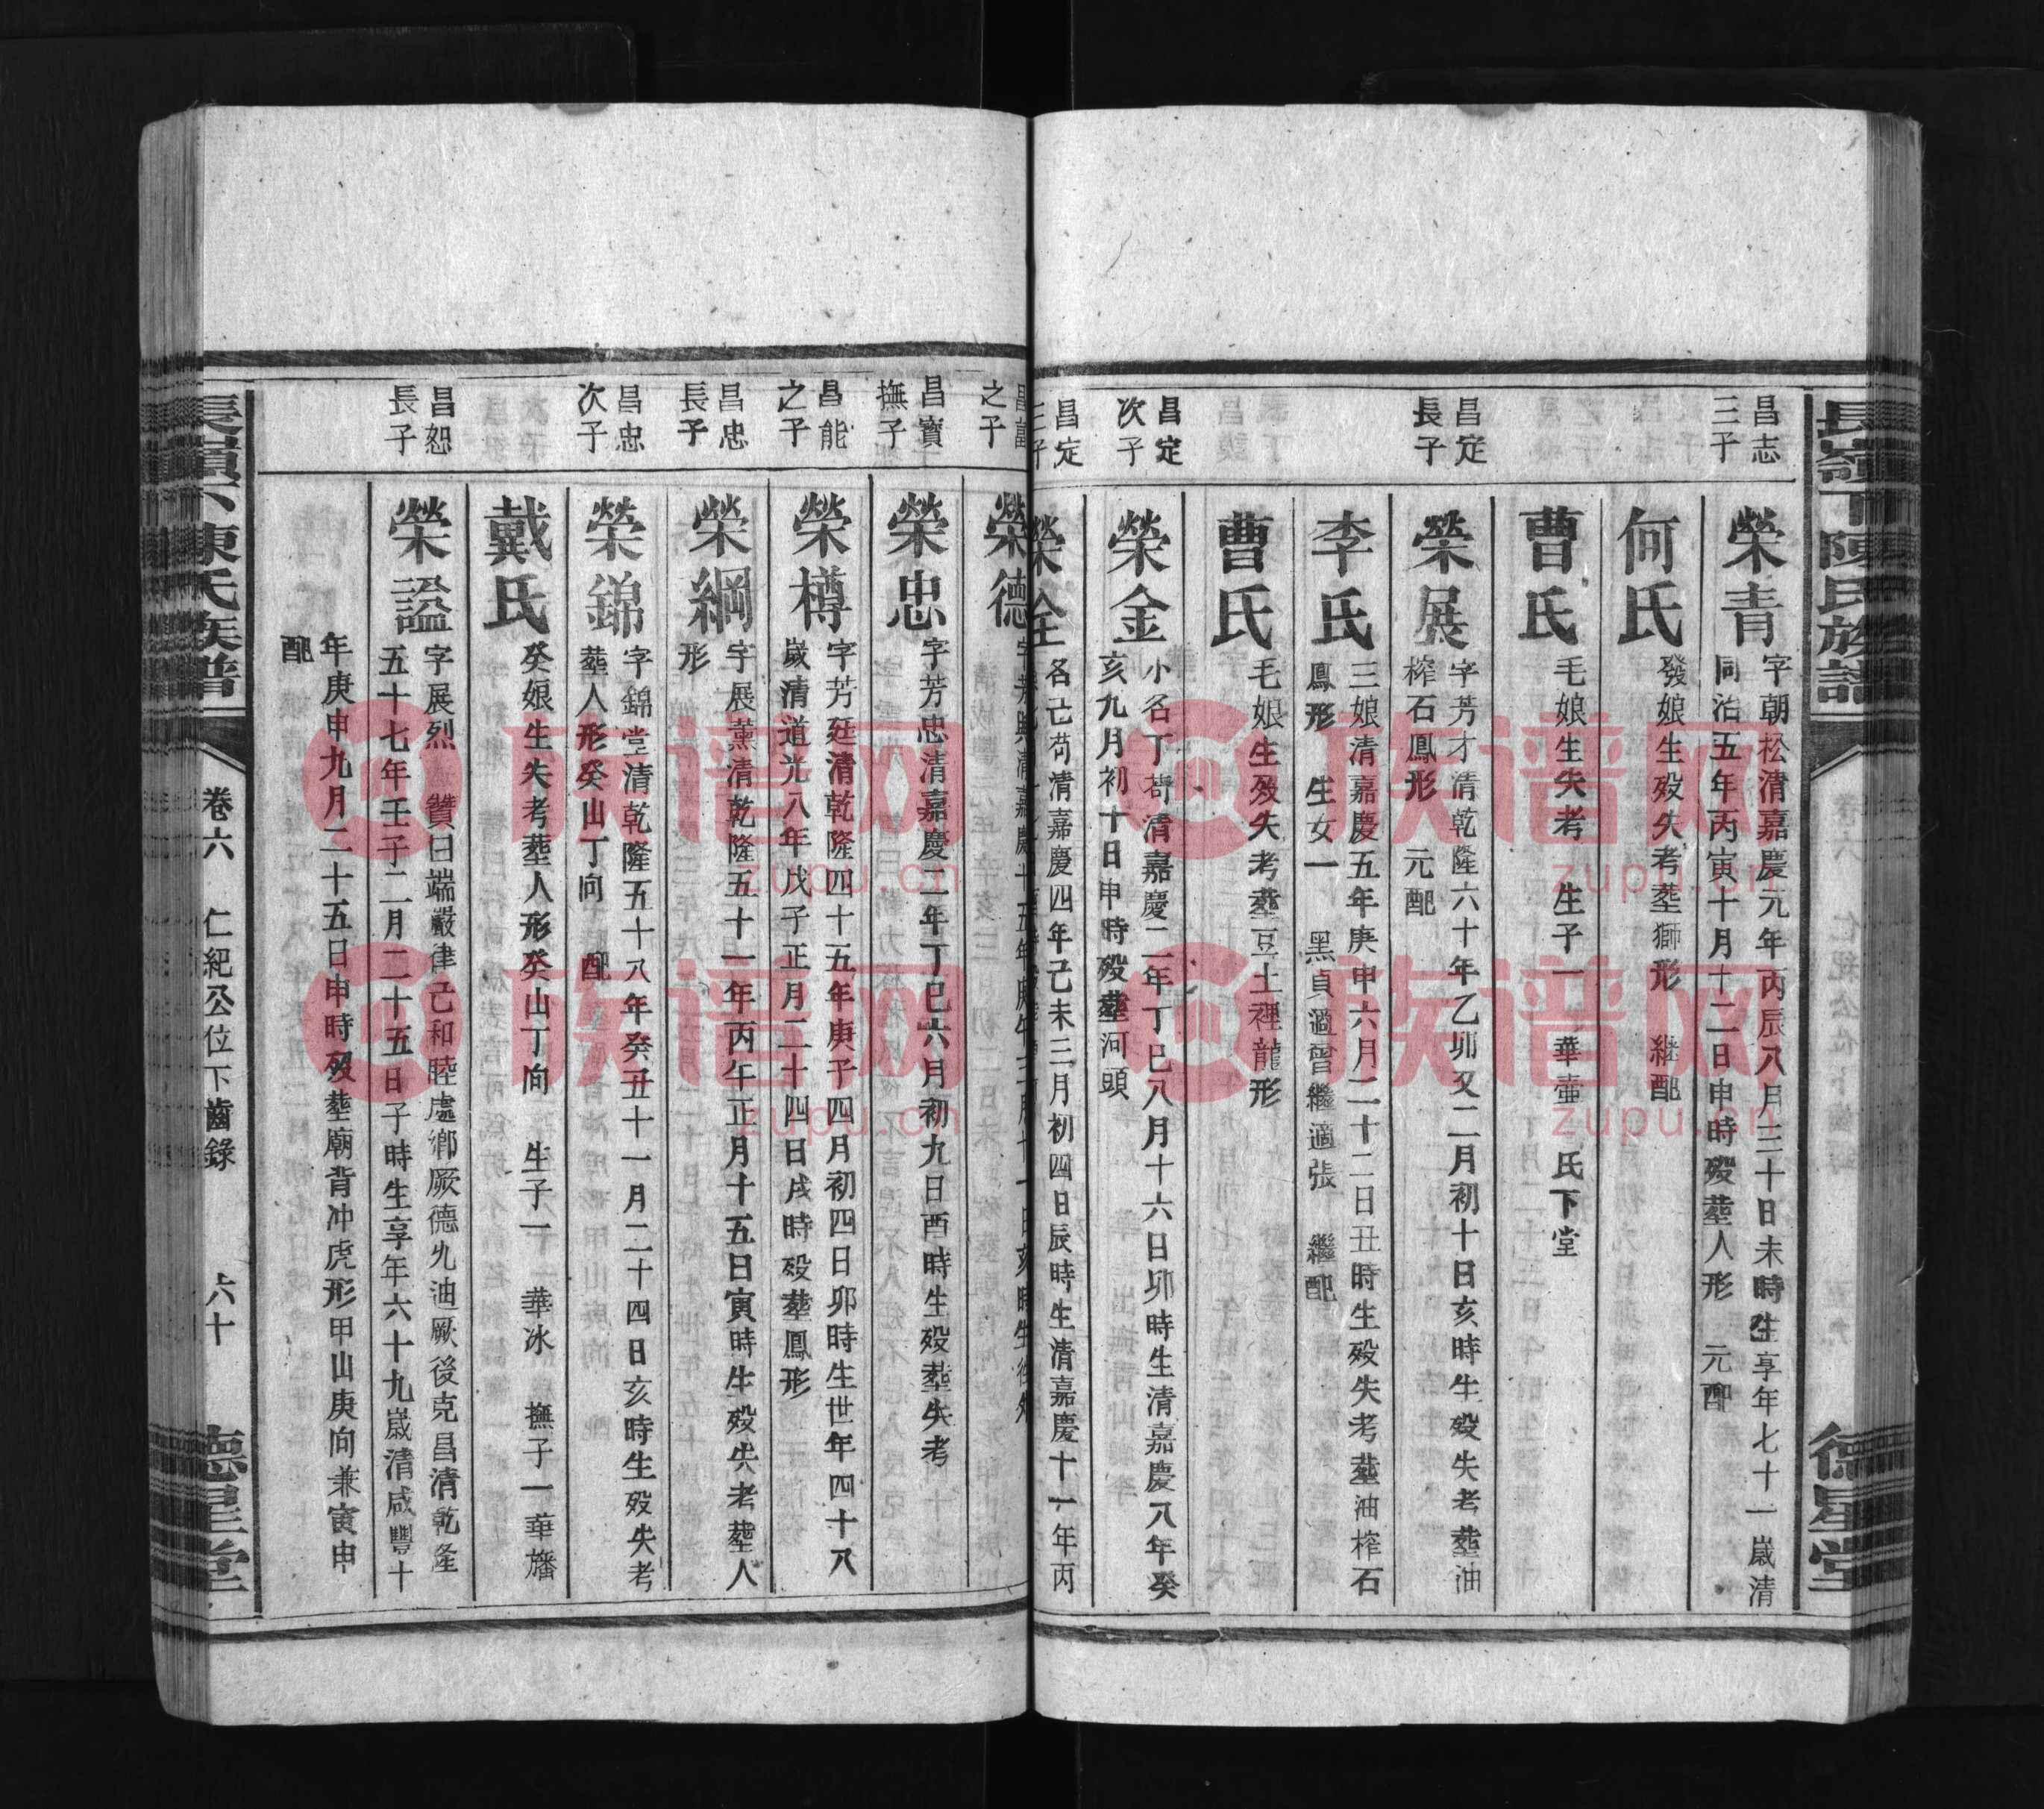 長嶺下陳氏族譜
德星堂
昌志
三子
榮青
字朝松清嘉慶元年丙辰八月三十日未時生享年七十一歲清
同治五年丙寅十月十二日申時歿塟人形 元配
何氏
發娘生歿失考塟獅形 継配
曹氏
毛娘生失考 生子一 華壷 氏下堂
昌定
長子
榮展
字芳才清乾隆六十年乙卯又二月初十日亥時生歿失考塟油
榨石鳳形 元配
李氏
三娘清嘉慶五年庚申六月二十二日丑時生歿失考塟油榨石
鳳形 生女一 黑貞適曾繼適張 繼配
曹氏
毛娘生歿失考塟豆土裡龍形
昌定
次子
榮金
小名丁苟清嘉慶二年丁巳八月十六日卯時生清嘉慶八年癸
亥九月初十日申時歿塟河頭
昌定
三子
榮全
名己苟清嘉慶四年己未三月初四日辰時生清嘉慶十一年丙
之子
榮德
昌寶
撫子
榮忠
字芳忠清嘉慶二年丁巳六月初九日酉時生歿塟失考
昌能
之子
榮樽
字芳廷清乾隆四十五年庚子四月初四日卯時生世年四十八
歲清道光八年戊子正月二十四日戌時歿塟鳳形
昌忠
長子
榮綱
字展薰清乾隆五十一年丙午正月十五日寅時生歿失考塟人
形
昌忠
次子
榮錦
字錦堂清乾隆五十八年癸丑十一月二十四日亥時生歿失考
塟人形癸山丁向 配
戴氏
癸娘生失考塟人形癸山丁向 生子一 華冰 撫子一華旛
昌恕
長子
榮謚
字展烈 贊曰端嚴律己和睦處鄉厥德允迪厥後克昌清乾隆
五十七年壬子二月二十五日子時生享年六十九歲清咸豐十
年庚申九月二十五日申時歿塟廟背冲虎形甲山庚向兼寅申
配
長嶺下陳氏族譜
卷六 仁紀公位下齒錄 六十
德星堂
族谱网
zupu.cn
族谱网
zupu.cn
族谱网
zupu.cn
族谱网
zupu.cn